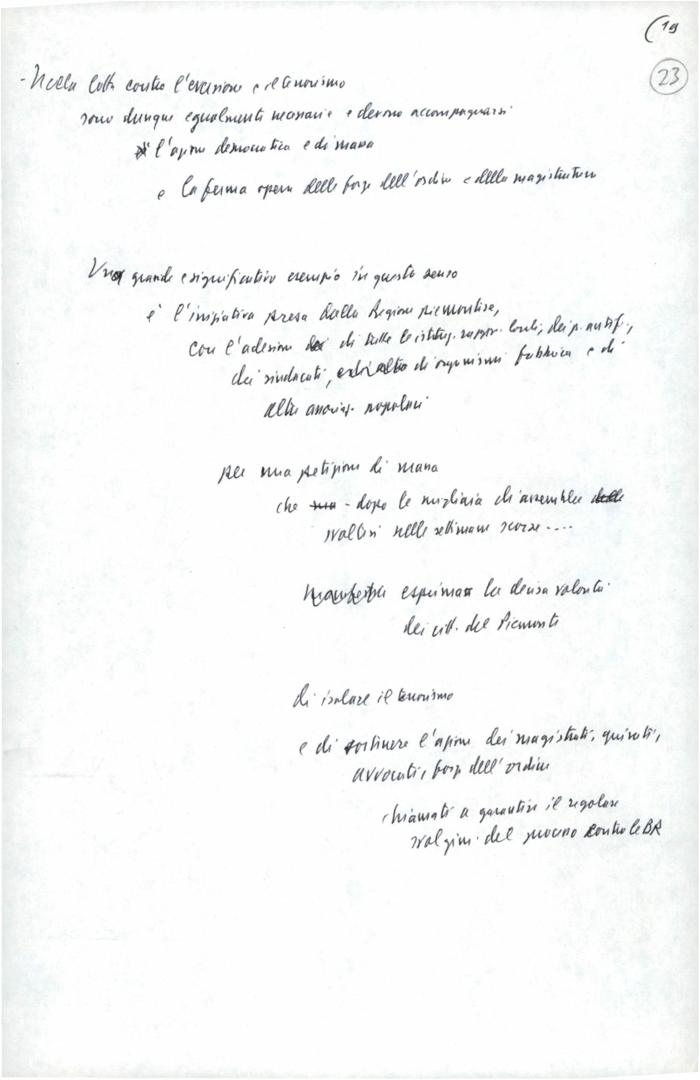 (19
23
- Nella lotta contro l'eversione e il terrorismo
sono dunque egualmente necessarie e devono accompagnarsi
l'azione democratica e di massa
e la ferma opera delle forze dell'ordine e della magistratura
Un grande e significativo esempio in questo senso
è l'iniziativa presa dalla Regione piemontese,
con l'adesione di tutte le istituz. rappr. locali, dei p. antif.,
dei sindacati, di organismi di fabbrica e di
altre associaz. popolari
per una petizione di massa
che - dopo le migliaia di assemblee
svoltesi nelle settimane scorse ....
esprima la decisa volontà
dei citt. del Piemonte
di isolare il terrorismo
e di sostenere l'azione dei magistrati, giurati,
avvocati, forze dell'ordine
chiamati a garantire il regolare
svolgim. del processo contro le BR